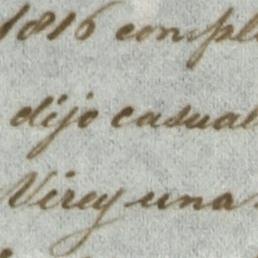 1816 compl
dijo casual
Virey una